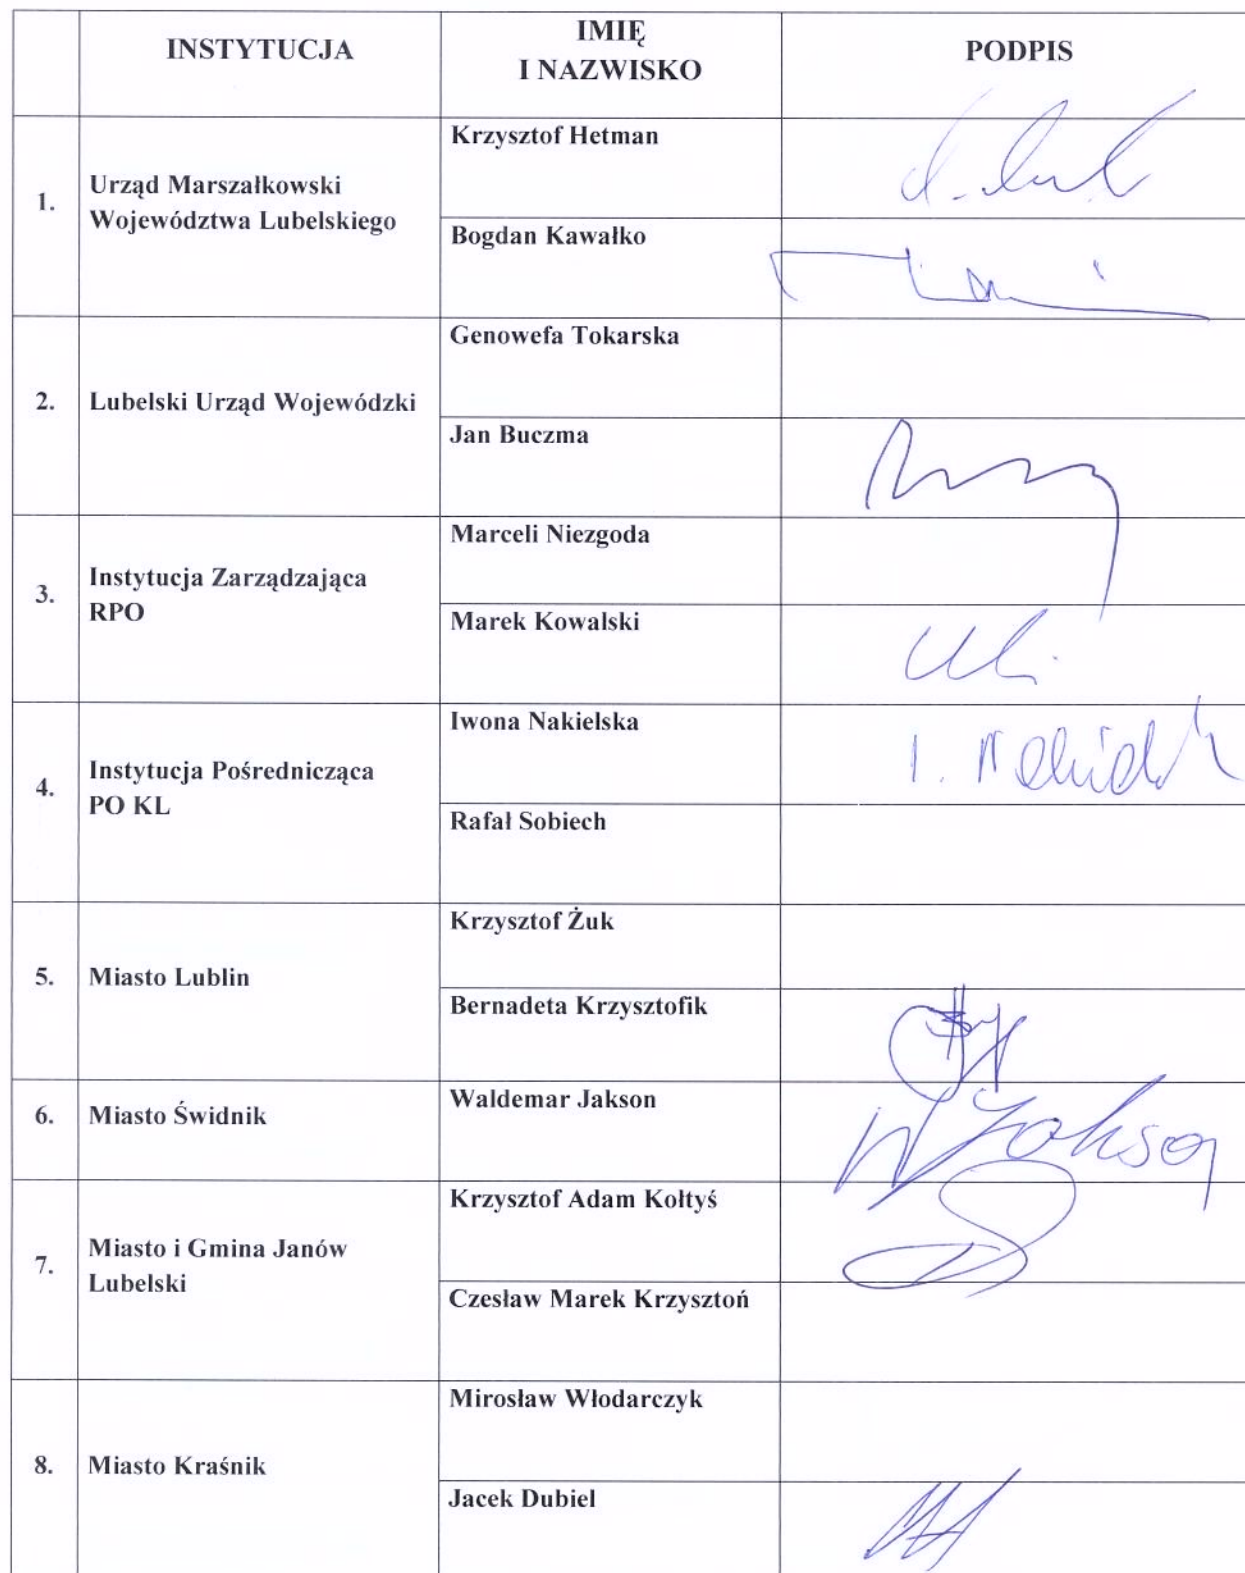 INSTYTUCJA
IMIĘ
I NAZWISKO
PODPIS
1.
Urząd Marszałkowski
Województwa Lubelskiego
Krzysztof Hetman
Bogdan Kawałko
2.
Lubelski Urząd Wojewódzki
Genowefa Tokarska
Jan Buczma
3.
Instytucja Zarządzająca
RPO
Marceli Niezgoda
Marek Kowalski
4.
Instytucja Pośrednicząca
PO KL
Iwona Nakielska
Rafał Sobiech
5.
Miasto Lublin
Krzysztof Żuk
Bernadeta Krzysztofik
6.
Miasto Świdnik
Waldemar Jakson
W Jakson
7.
Miasto i Gmina Janów
Lubelski
Krzysztof Adam Kołtyś
Czesław Marek Krzysztoń
8.
Miasto Kraśnik
Mirosław Włodarczyk
Jacek Dubiel